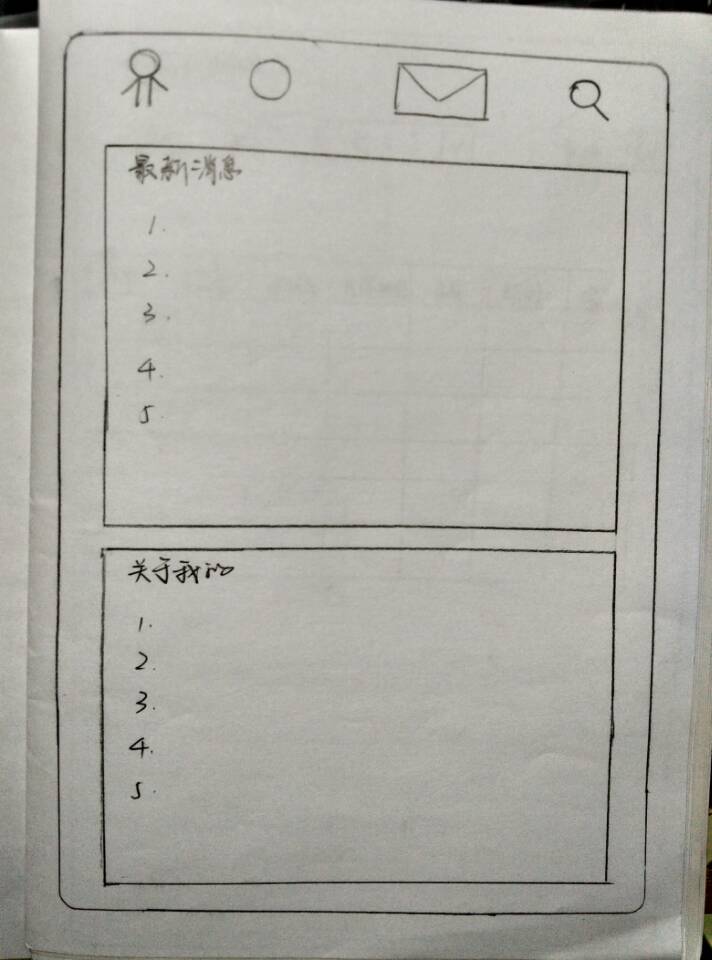 最新消息
1.
2.
3.
4.
5.
关于我的
1.
2.
3.
4.
5.